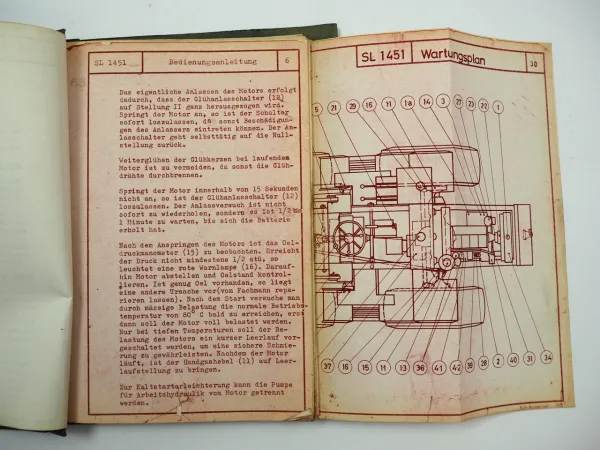 SL 1451 Bedienungsanleitung 6
Das eigentliche Anlassen des Motors erfolgt
dadurch, dass der Glühanlasschalter (12)
auf Stellung II ganz herausgezogen wird.
Springt der Motor an, so ist der Schalter
sofort loszulassen, da sonst Beschädigun-
gen des Anlassers eintreten können. Der An-
lasschalter geht selbsttätig auf die Null-
stellung zurück.
Weiterglühen der Glühkerzen bei laufendem
Motor ist zu vermeiden, da sonst die Glüh-
drähte durchbrennen.
Springt der Motor innerhalb von 15 Sekunden
nicht an, so ist der Glühanlasschalter (12)
loszulassen. Der Anlassversuch ist nicht
sofort zu wiederholen, sondern es ist 1/2 bis
1 Minute zu warten, bis sich die Batterie
erholt hat.
Nach dem Anspringen des Motors ist das Oel-
druckmanometer (15) zu beobachten. Erreicht
der Druck nicht mindestens 1/2 atü, so
leuchtet eine rote Warnlampe (16). Darauf-
hin Motor abstellen und Oelstand kontrol-
lieren. Ist genug Oel vorhanden, so liegt
eine andere Ursache vor(von Fachmann repa-
rieren lassen). Nach dem Start versuche man
durch mässige Belastung die normale Betriebs-
temperatur von 80° C bald zu erreichen, erst
dann soll der Motor voll belastet werden.
Nur bei tiefen Temperaturen soll der Be-
lastung des Motors ein kurzer Leerlauf vor-
geschaltet werden, um eine sichere Schmie-
rung zu gewährleisten. Nachdem der Motor
läuft, ist der Handgashebel (11) auf Leer-
laufstellung zu bringen.
Zur Kaltstarterleichterung kann die Pumpe
für Arbeitshydraulik vom Motor getrennt
werden.
SL 1451 Wartungsplan 30
5 21 29 16 11 1a 14 3 27 23 22 1
37 16 15 11 13 36 41 42 39 28 2 40 31 34